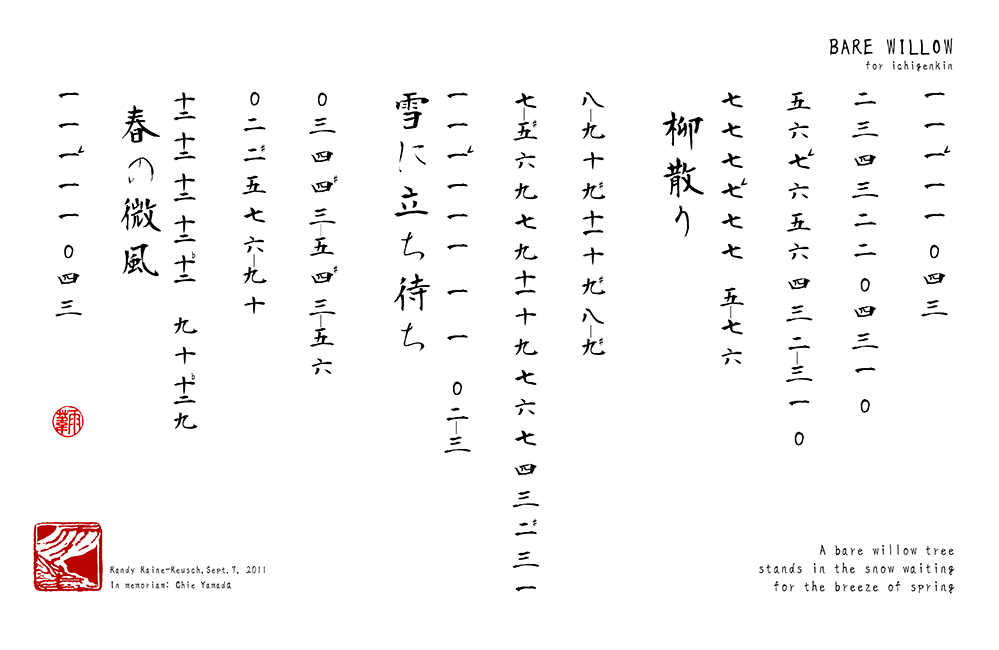 BARE WILLOW
for ichigenkin
一一一∠一一〇四三
二三四三二二〇四三一〇
五六七∠六五六四三二|三一〇
七七七七∠七七 五|七六
柳散り
八|九十九♯十一十九♯八|九♯
七|五♯六九七九十一十九七六七四三二♯三一
一一一∠一一一 一 一 〇二|三
雪に立ち待ち
〇三四四♯三|五四♯三|五六
〇二二♯五七六|九十
十二十二十二十二十二♭ 九十十二♭九
春の微風
一一一∠一一〇四三
A bare willow tree
stands in the snow waiting
for the breeze of spring
Randy Raine-Reusch. Sept. 7, 2011
In memoriam: Chie Yamada